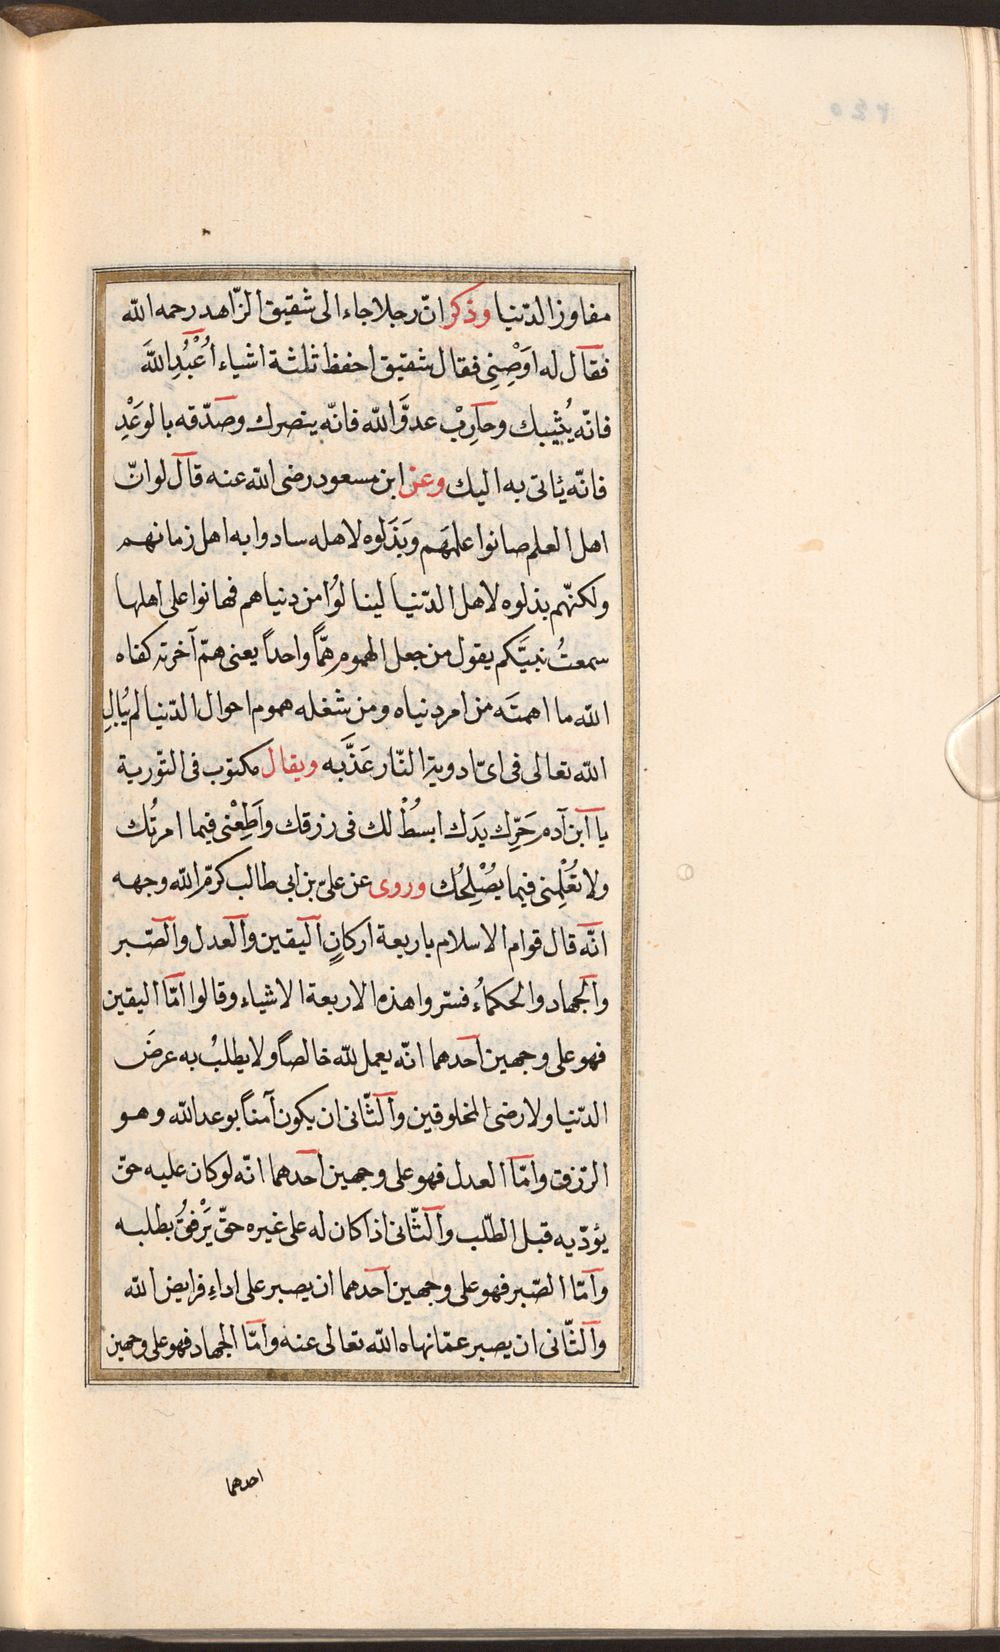 مفاوز الدّنيا وذكر انّ رجلا جاء الى شقيق الزّاهد رحمه اللّه
فقال له اَوْصِنِى فقال شقيق احفظ ثلثة اشياء اُعْبُدِ اللّٰهَ
فانّه يُثيبك وحارِبْ عدوَّ اللّه فانّه ينصرك وصدّقه بالوَعْدِ
فانّه يأتى به اليك وعن ابن مسعود رضى اللّه عنه قال لو انّ
اهل العلم صانوا علمَهَم وَبَذَلوه لاهله سادوا به اهل زمانهم
ولكنّهم بذلوه لاهل الدّنيا لينالوُا من دنياهم فهانوا على اهلها
سمعتُ نبيَّكم يقول من جعل الهموم همّاً واحداً يعنى همّ آخرته كفاه
اللّه ما اهمتَه من امر دنياه ومن شغله هموم احوال الدّنيا لم يُبالِ
اللّه تعالى فى اىّ اودية النّار عَذَّبه ويقال مكتوب فى التّورية
يا ابن آدم حَرِّك يدَك ابسُطْ لك فى رزقك واَطِعْنى فيما امرتُك
ولا تُعْلِمنى فيما يُصْلِحُك وروى عن علىّ بن ابى طالب كرّم اللّه وجهه
انّه قال قوام الاسلام باربعة اركانٍ اليقين والعدل والصّبر
والجهاد والحكماءُ فسّروا هذه الاربعة الاشياء وقالوا امّا اليقين
فهو على وجهين احدهما انّه يعمل للّه خالصاً ولا يطلبُ به عرضَ
الدّنيا ولا رضى المخلوقين والثّانى ان يكون آمناً بوعد اللّه وهو
الرّزق وامّا العدل فهو على وجهين احدهما انّه لو كان عليه حقّ
يؤدّيه قبل الطّلب والثّانى اذا كان له على غيره حقّ يَرْفقُ بطلبه
وامّا الصّبر فهو على وجهين احدهما ان يصبر على اداءِ فرايض اللّه
والثّانى ان يصبر عمّا نهاه اللّه تعالى عنه وامّا الجهاد فهو على وجهين
احدهما